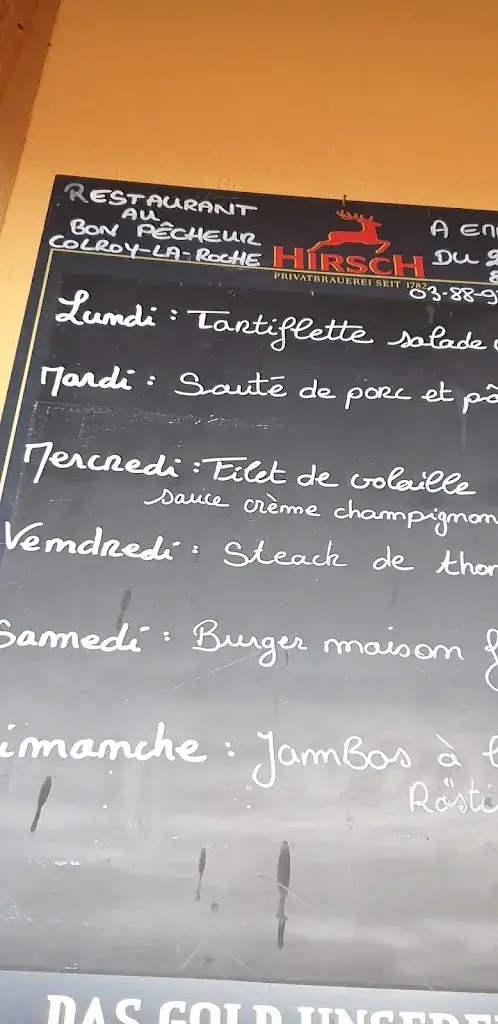 RESTAURANT
AU
BON PÊCHEUR
COLROY-LA-ROCHE
HIRSCH
PRIVATBRAUEREI SEIT 1782
A EM
DU
03-88-9
Lundi : Tartiflette salade
Mardi : Sauté de porc et pâ
Mercredi : Filet de volaille
sauce crème champignon
Vendredi : Steack de thon
Samedi : Burger maison f
imanche : JamBos à l
Rösti
DAS GOLD UNSERE